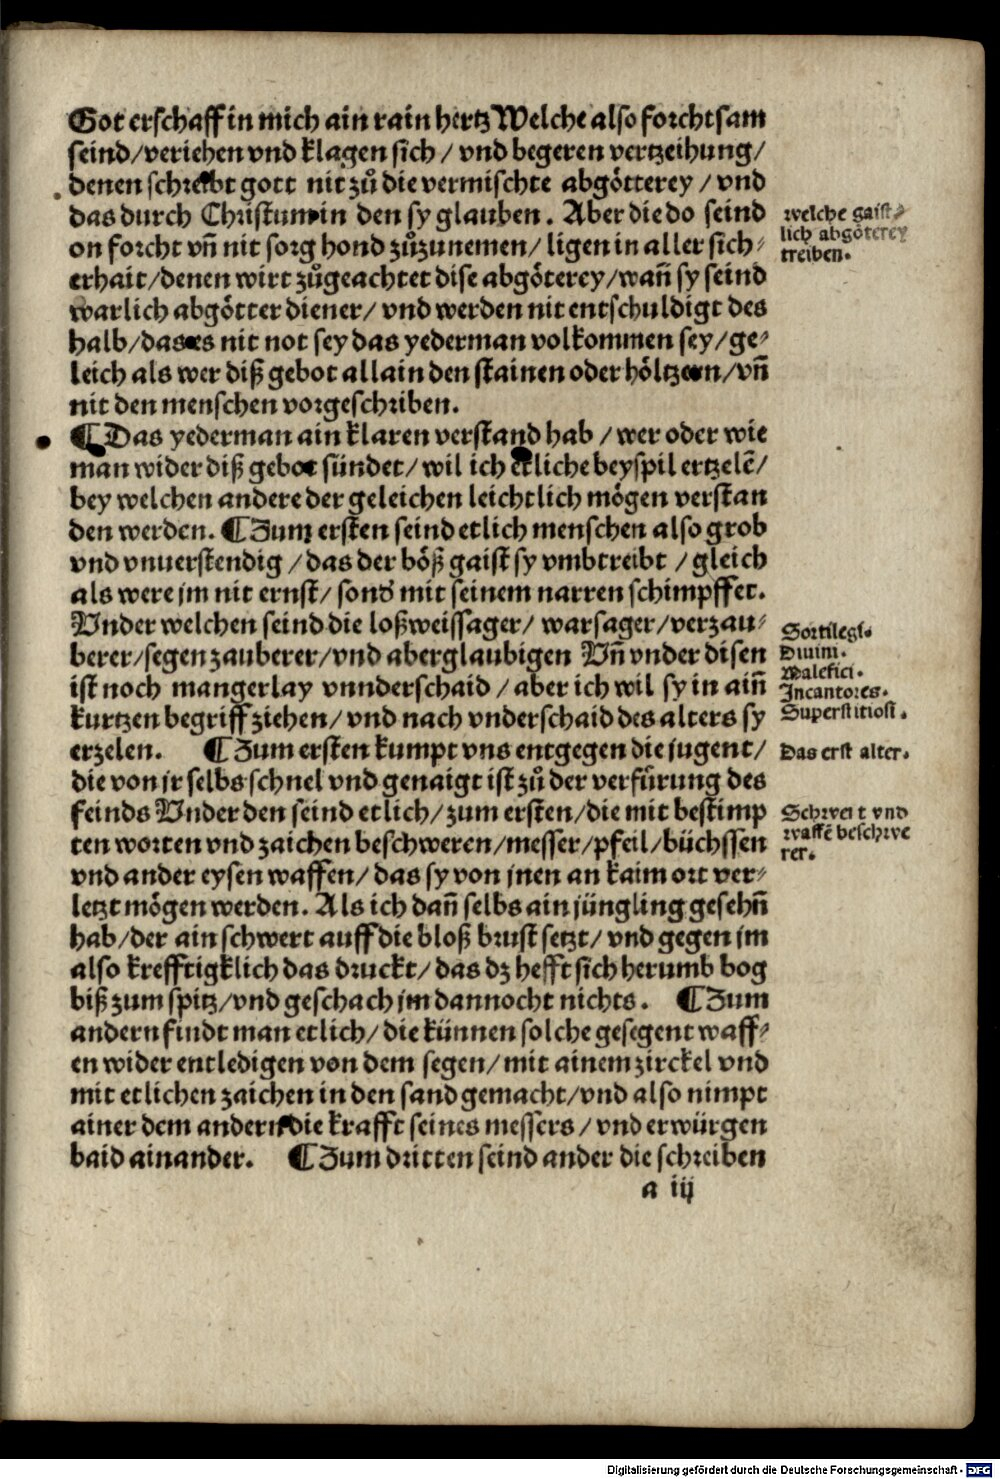 Got erschaff in mich ain rain hertz Welche also forchtsam
seind/veriehen vnd klagen sich / vnd begeren vertzeihung/
denen schreibt gott nit zů die vermischte abgötterey / vnd
das durch Christum in den sy glauben. Aber die do seind
on forcht vn̄ nit sorg hond zůzunemen/ ligen in aller sich⸗
erhait/denen wirt zůgeachtet dise abgöterey/wan̄ sy seind
warlich abgötter diener/ vnd werden nit entschuldigt des
halb/das es nit not sey das yederman volkommen sey/ge⸗
leich als wer diß gebot allain den stainen oder höltzern/vn̄
nit den menschen vorgeschriben.
welche gaist⸗
lich abgöterey
treiben.
¶Das yederman ain klaren verstand hab / wer oder wie
man wider diß gebot sündet/ wil ich etliche beyspil ertzelē/
bey welchen andere der geleichen leichtlich mögen verstan
den werden. ¶Zum ersten seind etlich menschen also grob
vnd vnuerstendig /das der böß gaist sy vmbtreibt / gleich
als were jm nit ernst/ sond' mit seinem narren schimpffet.
Vnder welchen seind die loßweissager/ warsager/verzau⸗
berer/segen zauberer/vnd aberglaubigen Vn̄ vnder disen
ist noch mangerlay vnnderschaid / aber ich wil sy in ain̄
kurtzen begriff ziehen/ vnd nach vnderschaid des alters sy
erzelen. ¶Zum ersten kumpt vns entgegen die jugent/
die von jr selbs schnel vnd genaigt ist zů der verfürung des
feinds Vnder den seind etlich/zum ersten/die mit bestimp
ten worten vnd zaichen beschweren/messer/pfeil/büchssen
vnd ander eysen waffen/ das sy von jnen an kaim ort ver⸗
letzt mögen werden. Als ich dan̄ selbs ain jüngling gesehn̄
hab/der ain schwert auff die bloß brust setzt/ vnd gegen jm
also krefftigklich das druckt/ das dz hefft sich herumb bog
biß zum spitz/vnd geschach jm dannocht nichts. ¶Zum
andern findt man etlich/ die künnen solche gesegent waff⸗
en wider entledigen von dem segen/ mit ainem zirckel vnd
mit etlichen zaichen in den sand gemacht/vnd also nimpt
ainer dem andern die krafft seines messers / vnd erwürgen
baid ainander. ¶Zum dritten seind ander die schreiben
Sortilegi.
Diuini.
Malefici.
Incantores.
Superstitiosi.
Das erst alter.
Schwert vnd
waffē beschwe
rer.
a iij
Digitalisierung gefördert durch die Deutsche Forschungsgemeinschaft - DFG